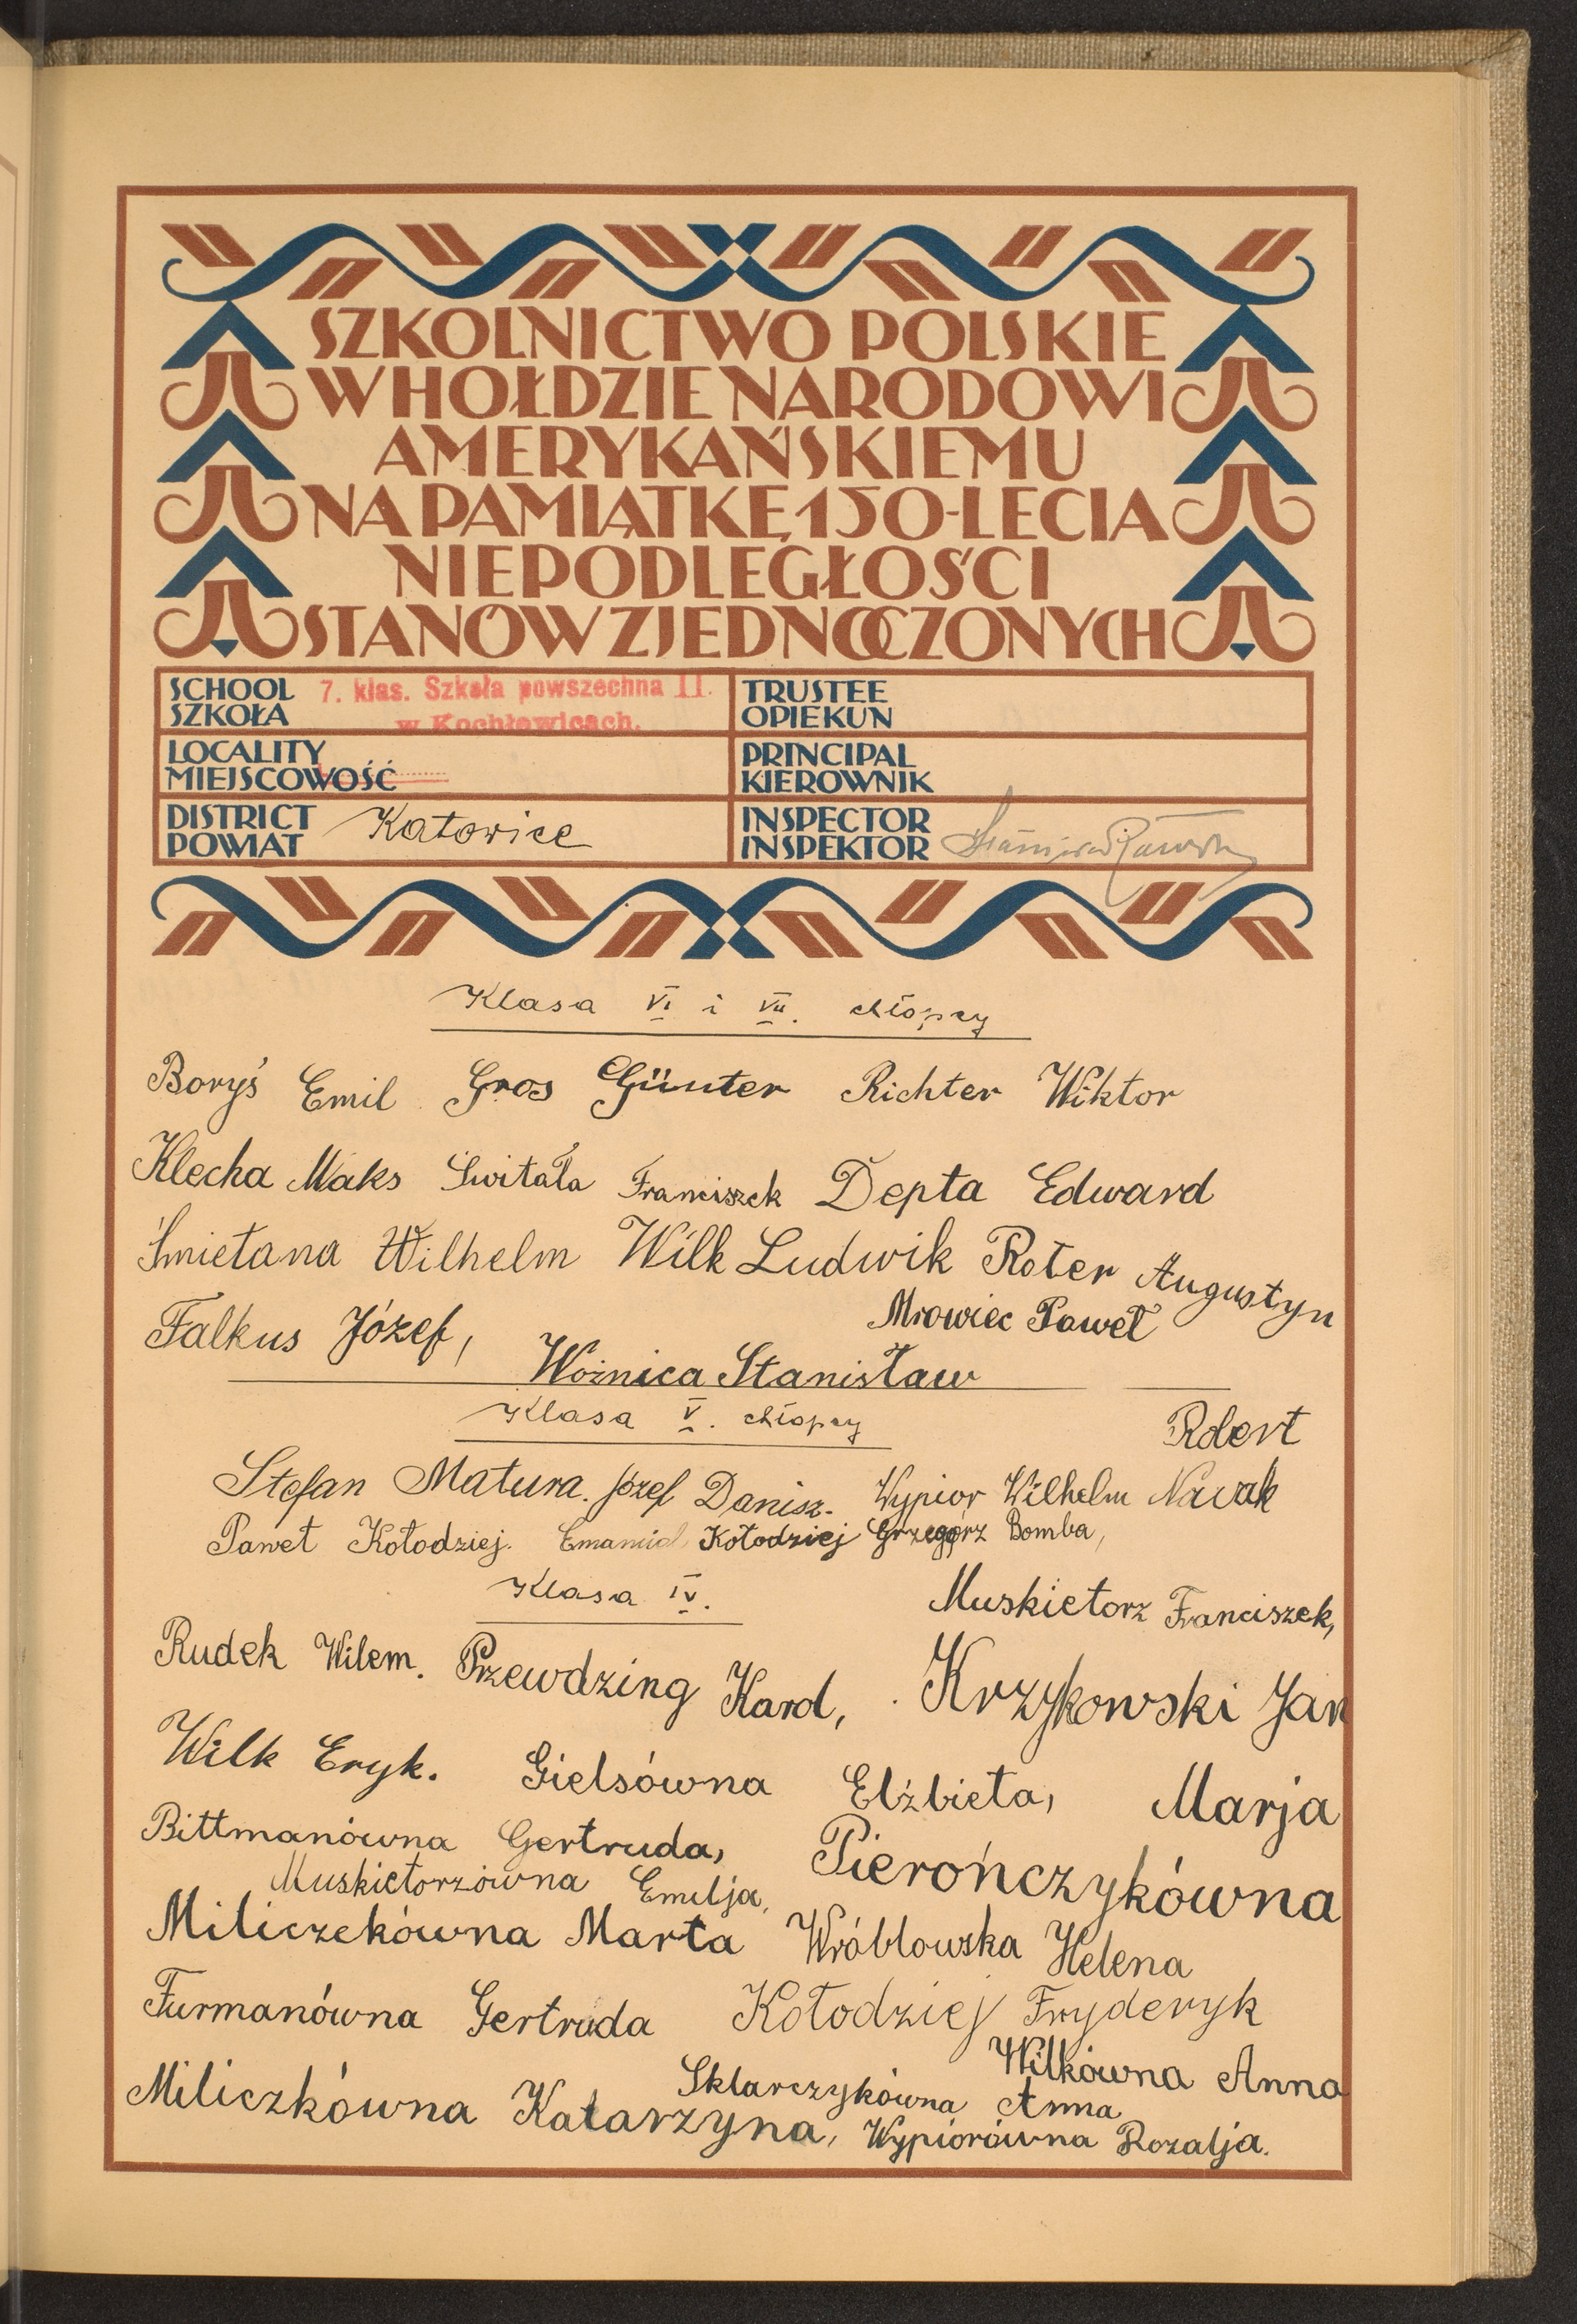 SZKOLNICTWO POLSKIE
W HOŁDZIE NARODOWI
AMERYKAŃSKIEMU
NA PAMIĄTKĘ 150-LECIA
NIEPODLEGŁOŚCI
STANÓW ZJEDNOCZONYCH
SCHOOL
SZKOŁA
7. klas. Szkoła powszechna II.
w Kochłowicach.
TRUSTEE
OPIEKUN
LOCALITY
MIEJSCOWOŚĆ
PRINCIPAL
KIEROWNIK
DISTRICT
POWIAT
Katowice
INSPECTOR
INSPEKTOR
Klasa VI i VII. chłopcy
Boryś Emil Gros Günter Richter Wiktor
Klecha Maks Świtała Franciszek Depta Edward
Śmietana Wilhelm Wilk Ludwik Roter Augustyn
Falkus Józef, Mrowiec Paweł
Woźnica Stanisław
Klasa V. chłopcy
Robert
Stefan Matura. Józef Danisz. Wypior Wilhelm Nawak
Paweł Kołodziej. Emanuel Kołodziej Grzegórz Bomba,
Klasa IV.
Muskietorz Franciszek,
Rudek Wilem. Przewdzing Karol, Krzykowski Jan
Wilk Eryk. Gielsówna Elżbieta, Marja
Bittmanówna Gertruda, Pierończykówna
Muskietorzówna Emilja,
Miliczekówna Marta Wróblowska Helena
Furmanówna Gertruda Kołodziej Fryderyk
Wilkówna Anna
Sklarczykówna Anna
Miliczkówna Katarzyna, Wypiorówna Rozalja.